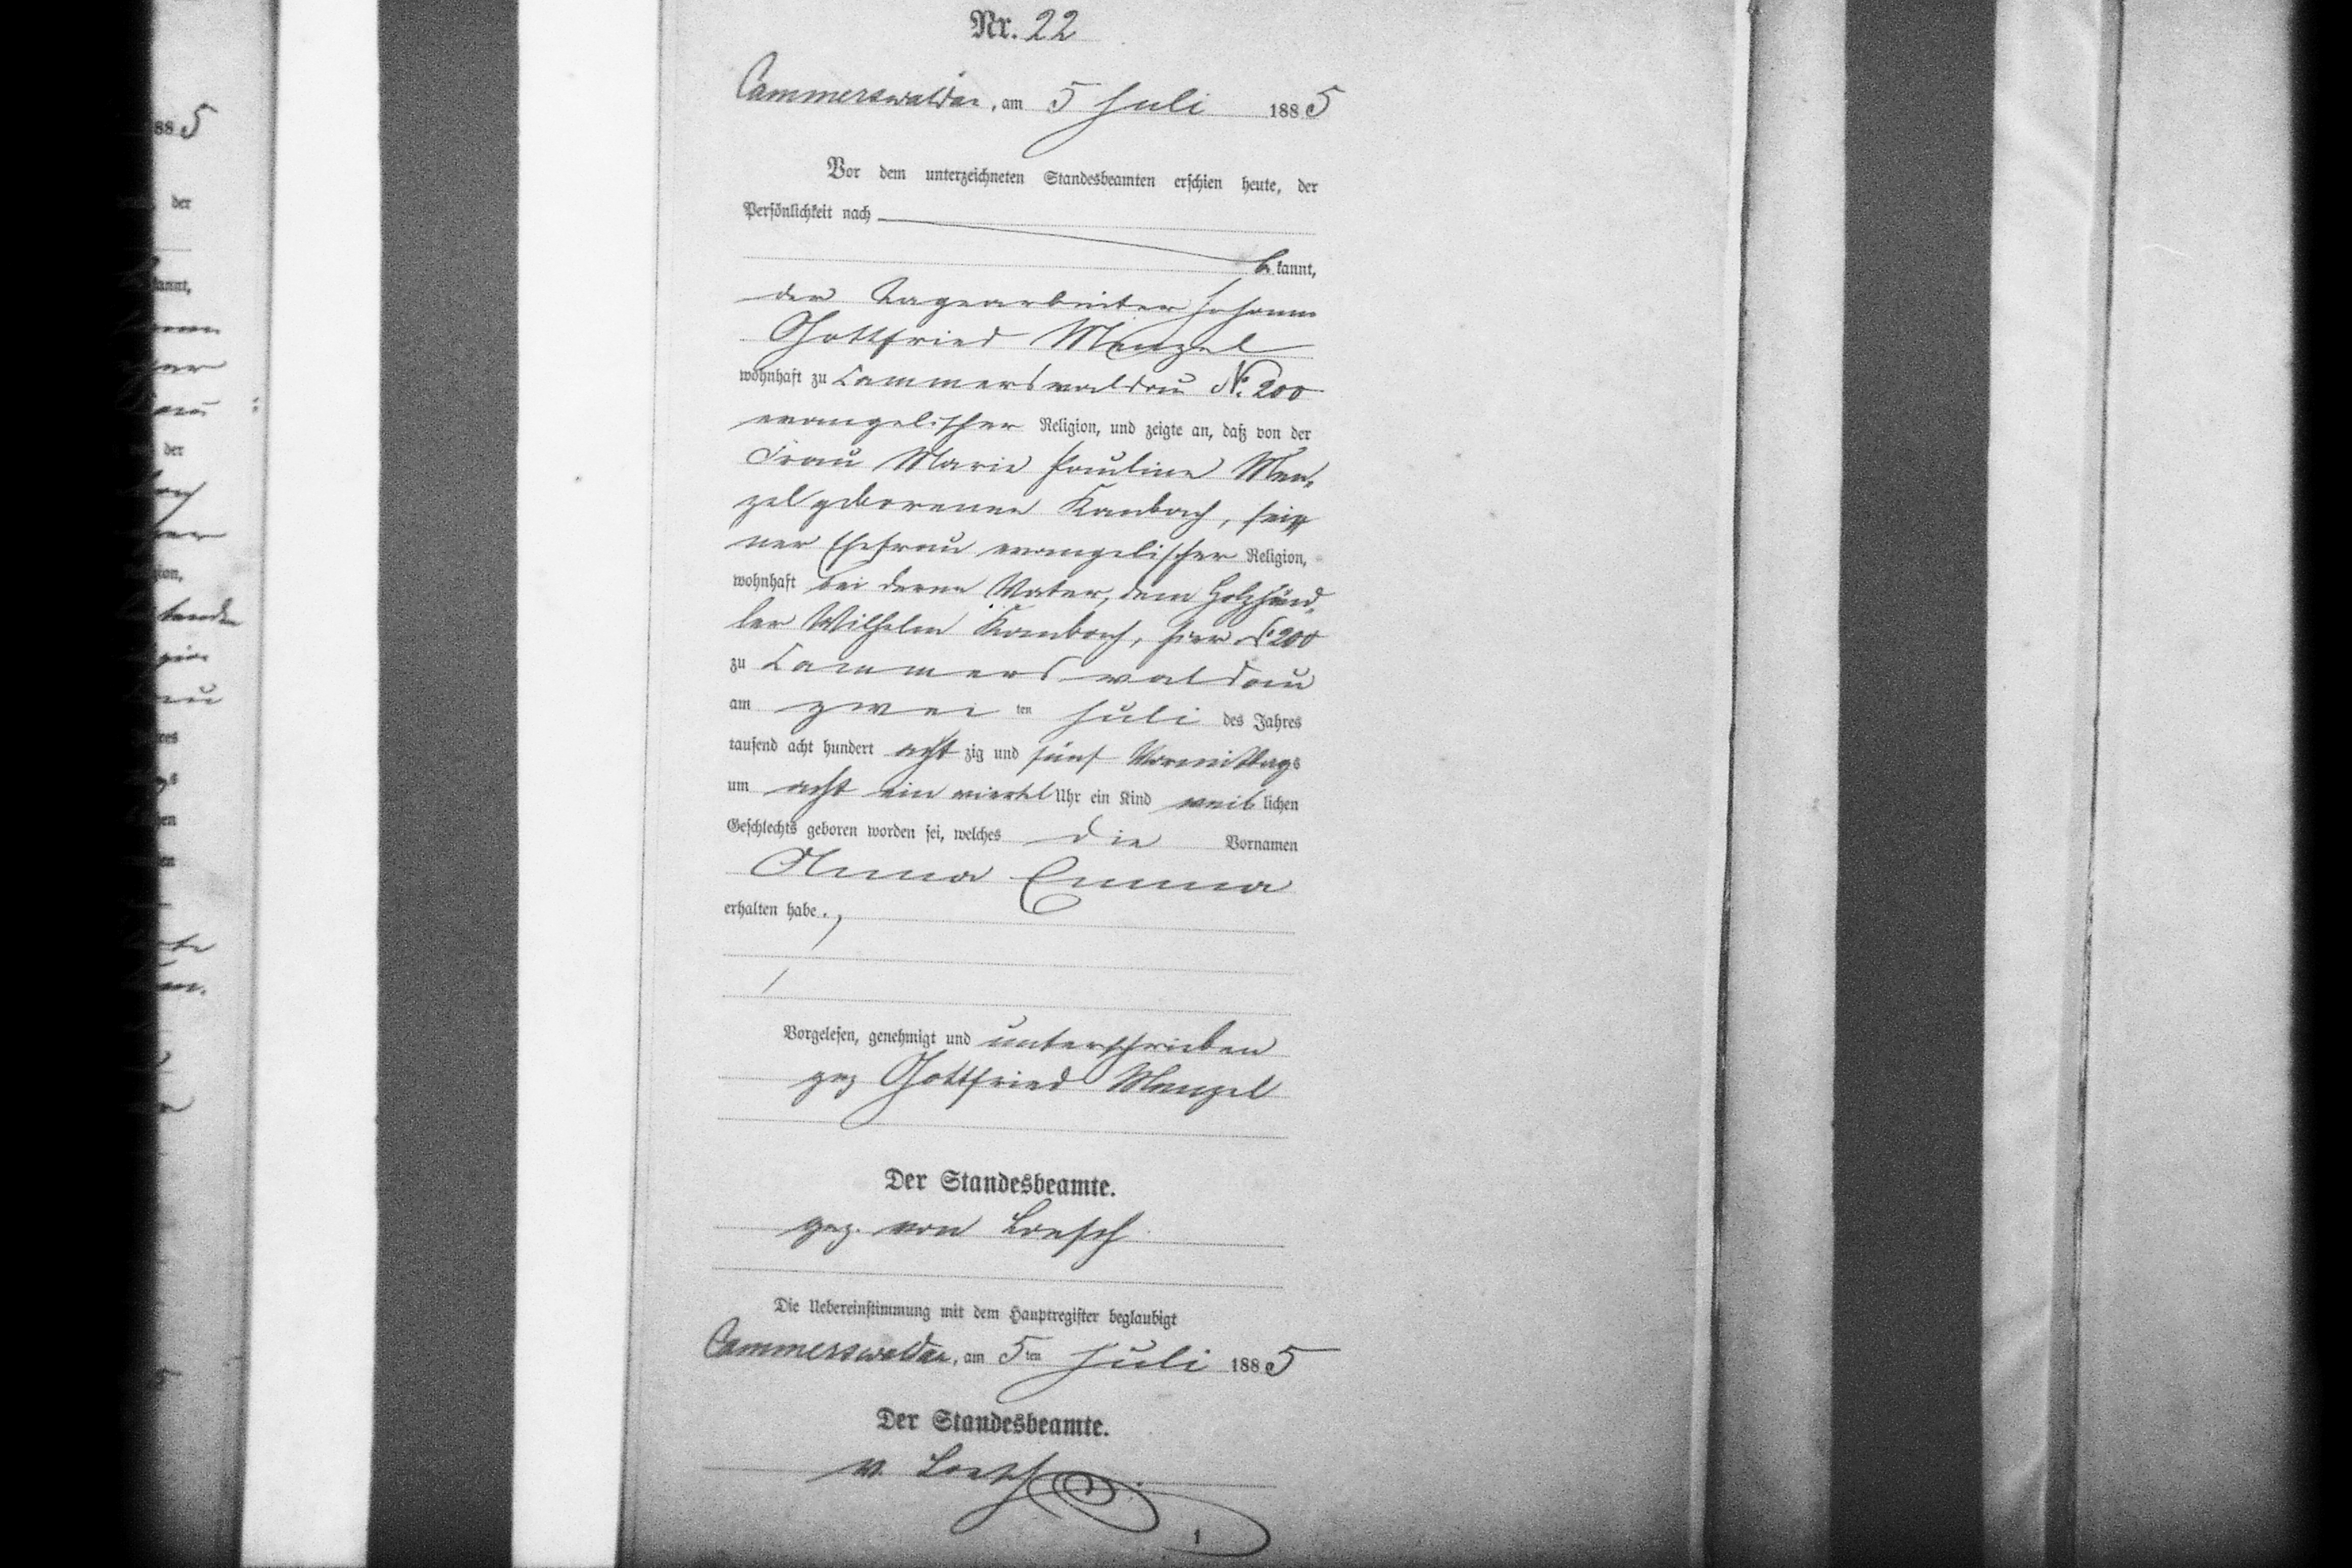 Nr. 22
Cammerswaldau, am 5 Juli 1885
Vor dem unterzeichneten Standesbeamten erschien heute, der
Persönlichkeit nach
bekannt,
der Tagearbeiter Johann
Gottfried Menzel
wohnhaft zu Cammerswaldau No. 200
evangelischer Religion, und zeigte an, daß von der
Frau Marie Pauline Men-
zel geborenen Kambach, sei-
ner Ehefrau evangelischer Religion,
wohnhaft bei deren Vater, dem Holzhänd-
ler Wilhelm Kambach, hier No 200
zu Cammerswaldau
am zweiten Juli des Jahres
tausend acht hundert achtzig und fünf Vormittags
um acht ein viertel Uhr ein Kind weiblichen
Geschlechts geboren worden sei, welches die Vornamen
Anna Emma
erhalten habe.
Vorgelesen, genehmigt und unterschrieben
gez Gottfried Menzel
Der Standesbeamte.
gez. von Loesch
Die Uebereinstimmung mit dem Hauptregister beglaubigt
Cammerswaldau, am 5ten Juli 1885
Der Standesbeamte.
v. Loesch
1